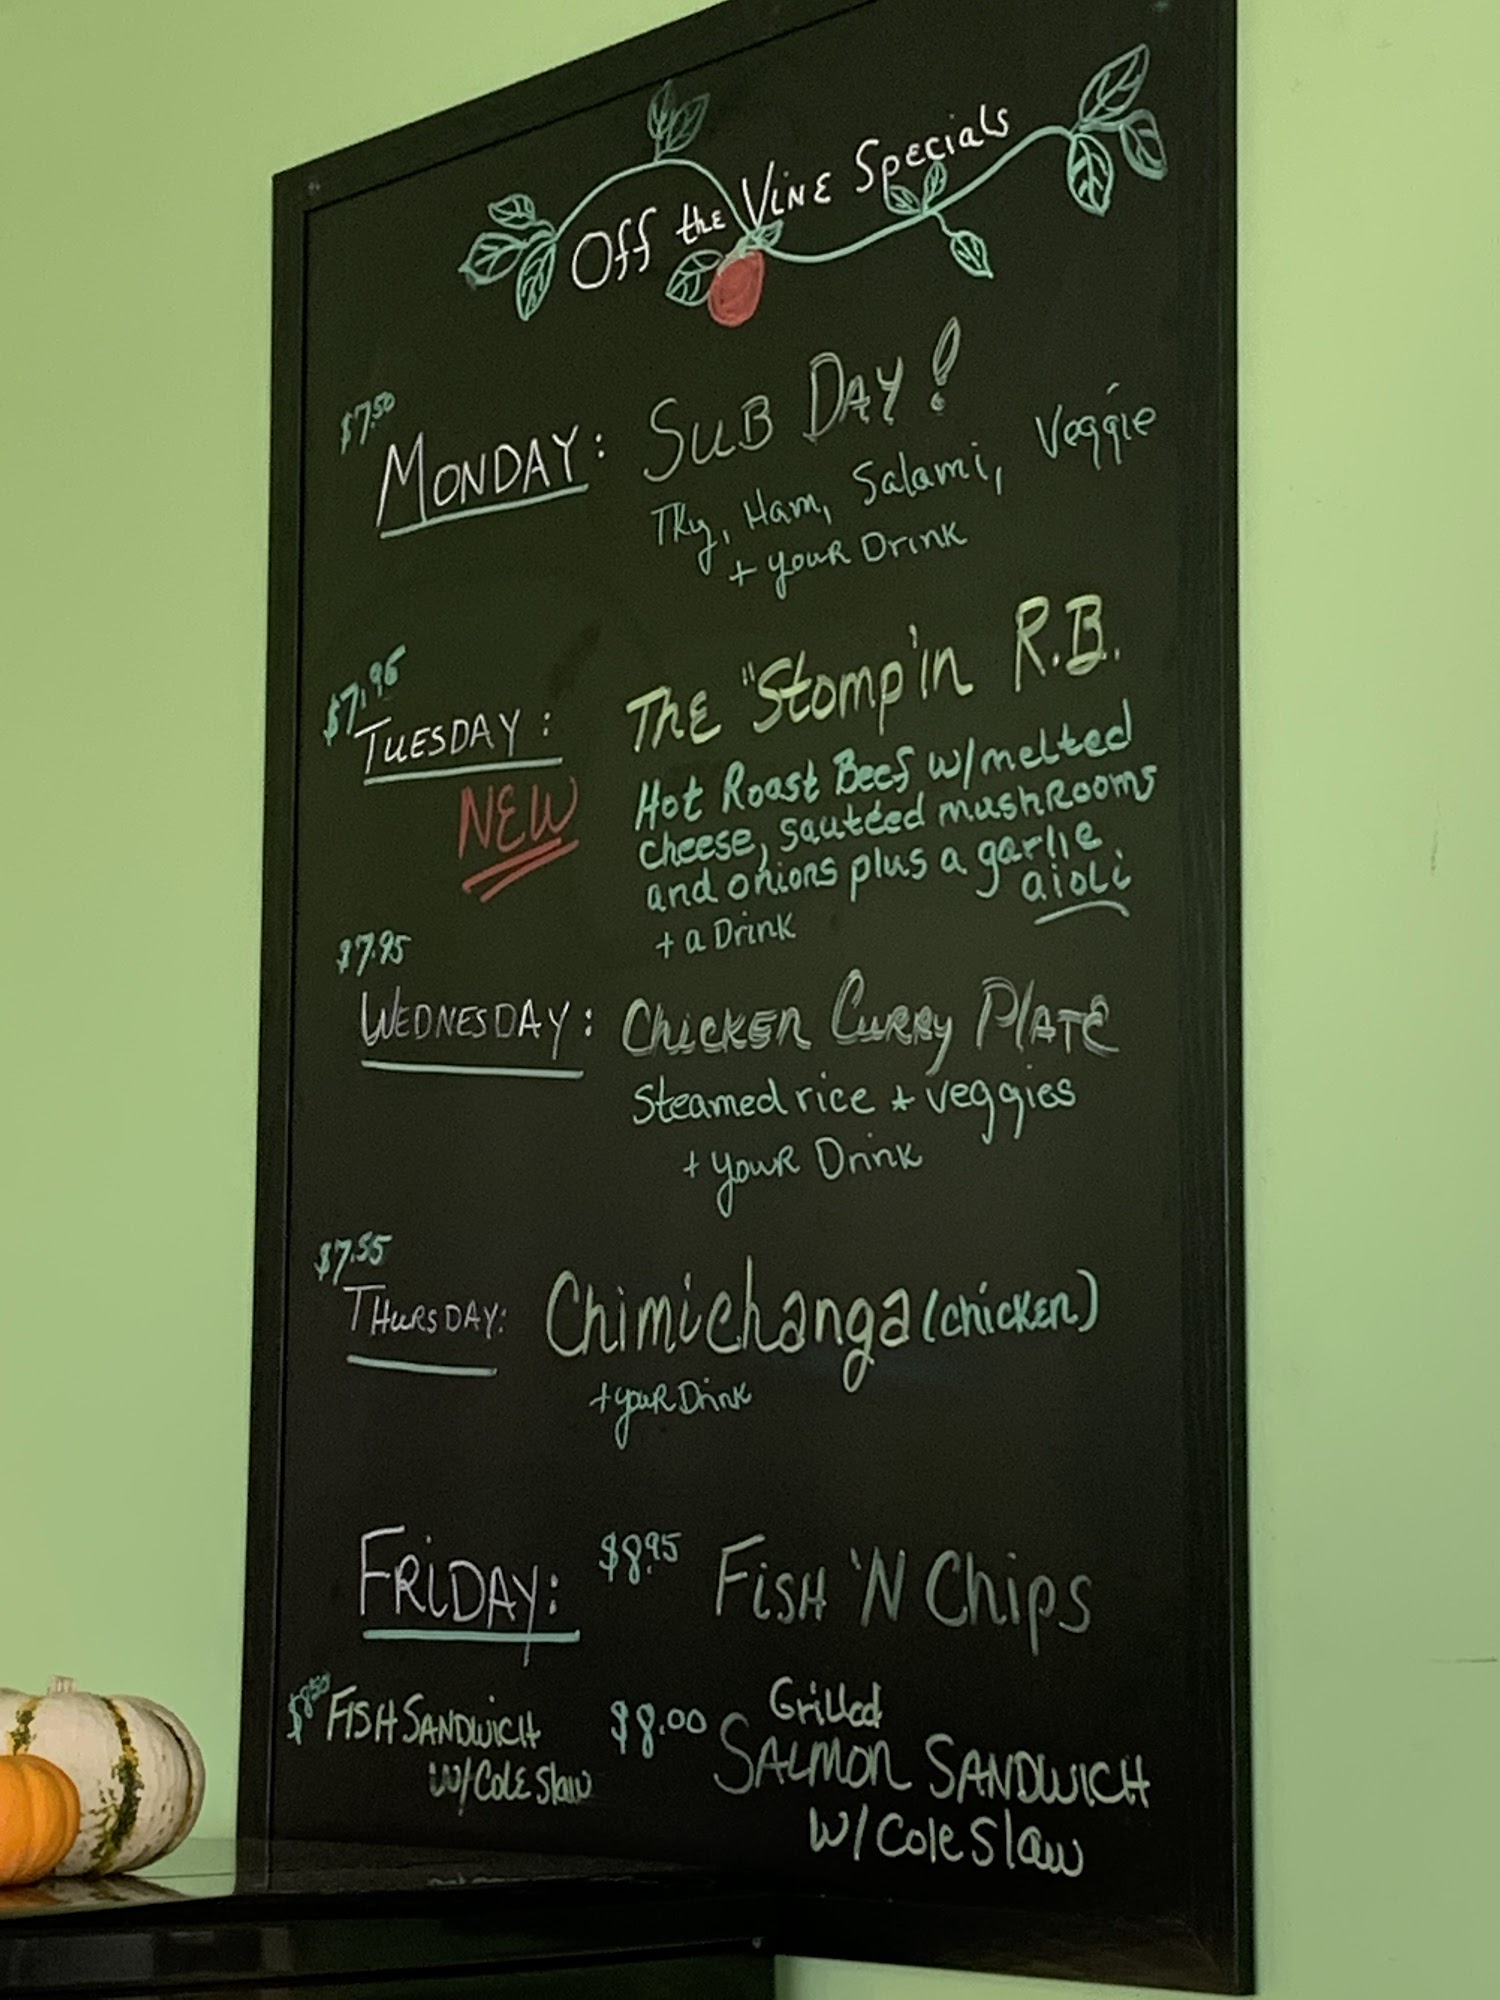 Off the Vine Specials
$7.50
Monday: Sub Day!
Tky, Ham, Salami, Veggie
+ your Drink
$7.95
Tuesday: The "Stomp'in R.B.
NEW
Hot Roast Beef w/melted
cheese, sautéed mushrooms
and onions plus a garlic
aioli
+ a Drink
$7.95
Wednesday: Chicken Curry Plate
Steamed rice + veggies
+ your Drink
$7.55
Thursday: Chimichanga (chicken)
+ your Drink
Friday: $8.95 Fish 'N Chips
$8.50 Fish Sandwich
w/Cole Slaw
$8.00 Grilled
Salmon Sandwich
w/Cole Slaw